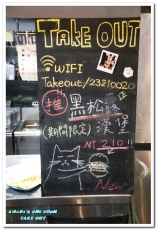 TAKE OUT
WIFI
Takeout/23210020
推 黑松露
(期間限定) 漢堡
NT 210
New
TAKE OUT